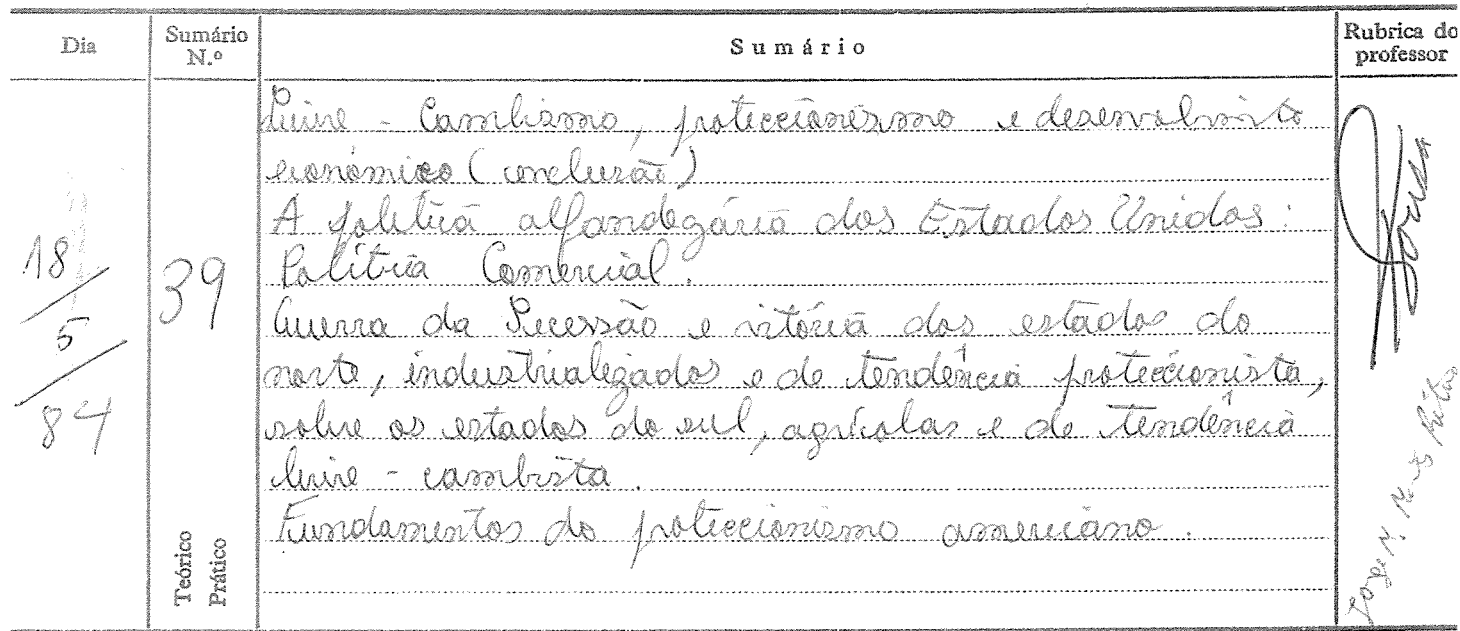 Dia
Sumário N.º
Sumário
Rubrica do professor
18/5/84
39
Livre - Cambismo, proteccionismo e desenvolvimento
económico (conclusão)
A política alfandegária dos Estados Unidos:
Política Comercial.
Guerra da Secessão e vitória dos estados do
norte, industrializados e de tendência proteccionista,
sobre os estados do sul, agrícolas e de tendência
livre - cambista.
Fundamentos do proteccionismo americano.
Teórico
Prático
Sousa